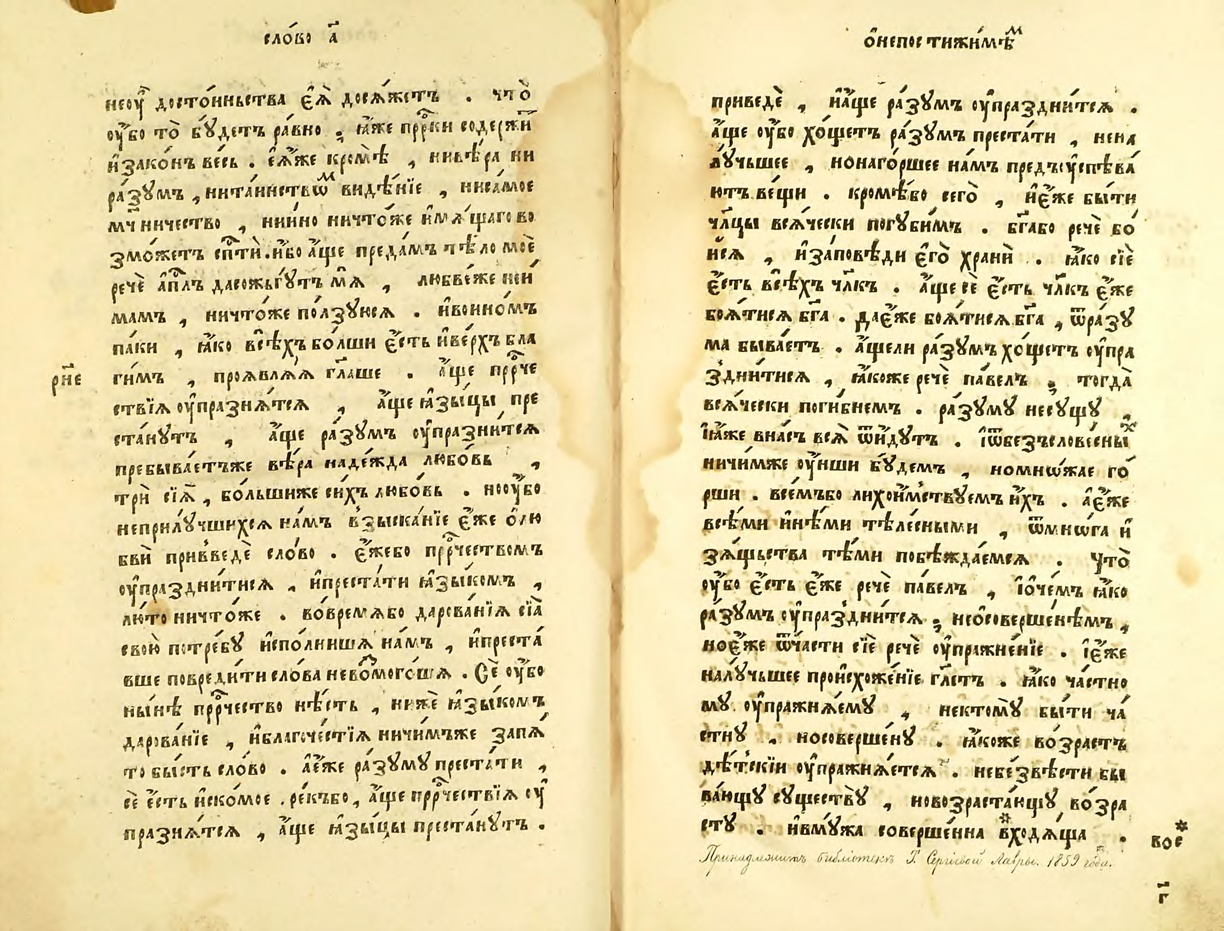 сло́во а҃
неоу҆ досто́иньства є҆ѧ̀ досѧ́жетъ . что̀
оу҆́бо то̀ бꙋ́детъ ра́вно ; ꙗ҆́же прⷪ҇рки содержи́
и҆зако́нъ весь . є҆ѧ́же кромѣ̀ , нивѣ́ра ни
ра́зꙋмъ , нита́инствѡⷨ видѣ́нїе , ниса́мое
мч҃ничество , нии́но ничто́же и҆мꙋ́щаго во
змо́жетъ сп҃тѝ . и҆́бо а҆́ще преда́мъ тѣ́ло моѐ
речѐ а҆пⷭ҇лъ дасожьгꙋ́тъ мѧ̀ , любве́же неи́
мамъ , ничто́же по́лзꙋюсѧ . и҆во и҆но́мъ
па́ки , ꙗ҆́ко всѣ́хъ бо́лши є҆́сть и҆ве́рхъ бла
ги́мъ , проѧвлѧ́ѧ гл҃аше . а҆́ще прⷪ҇рче
ствїѧ оу҆празнѧ́тсѧ , а҆́ще ꙗ҆зы́цы пре
ста́нꙋтъ , а҆́ще ра́зꙋмъ оу҆празни́тсѧ
пребыва́етъже вѣ́ра наде́жда любо́вь ,
трѝ сїѧ̀ , бо́льшиже си́хъ любо́вь . нооу҆́бо
неприлꙋ́чшихсѧ на́мъ взыска́нїе є҆́же ѡ҆лю
бвѝ приведѐ сло́во . є҆́жебо прⷪ҇рчествомъ
оу҆праздни́тисѧ , и҆преста́ти ꙗ҆зы́комъ ,
лю́то ничто́же . во́времѧбо дарова́нїѧ сїѧ̀
свою̀ потре́бꙋ и҆спо́лнишѧ на́мъ , и҆преста́
вше повреди́ти сло́ва невомого́шѧ . Се́ оу҆́бо
ны́нѣ прⷪ҇рчество нѣ́сть , нижѐ ꙗ҆зы́комъ
дарова́нїе , и҆благоче́стїѧ ничи́мъже запѧ́
то бы́сть сло́во . а҆є҆́же ра́зꙋмꙋ преста́ти ,
се́ є҆́сть и҆ско́мое . ре́къбо , а҆́ще прⷪ҇рчествїѧ оу҆
празнѧ́тсѧ , а҆́ще ꙗ҆зы́цы преста́нꙋтъ .
рн҃е
ѡ҆непостижи́мѣⷨ
приведѐ , и҆а҆́ще ра́зꙋмъ оу҆праздни́тсѧ .
а҆́ще оу҆́бо хо́щетъ ра́зꙋмъ преста́ти , нена
лꙋ́чьшее , нонаго́ршее на́мъ предъꙋспѣва́
ютъ ве́щи . кромѣ́бо сего̀ , и҆є҆́же бы́ти
чл҃цы всѧ́чески погꙋби́мъ . бг҃або речѐ бо́
исѧ , и҆за́повѣди є҆го̀ хранѝ . ꙗ҆́ко сїѐ
є҆́сть всѣ́хъ чл҃къ . а҆́ще сѐ є҆́сть чл҃къ є҆́же
боѧ́тисѧ бг҃а . дає҆́же боѧ́тисѧ бг҃а , ѿра́зꙋ
ма быва́етъ . а҆́щели ра́зꙋмъ хо́щетъ оу҆пра
здни́тисѧ , ꙗ҆́коже речѐ па́велъ ; тогда̀
всѧ́чески поги́бнемъ . ра́зꙋмꙋ несꙋ́щꙋ ,
ꙗ҆́же вна́съ всѧ̀ ѿи́дꙋтъ . і҆ѿбезъслове́сныⷯ
ничи́мже оу҆́ньши бꙋ́демъ , номнѡ́жае го́
рши . все́мъбо лихои́мствꙋемъ и҆́хъ . а҆є҆́же
все́ми и҆нѣ́ми тѣле́сными , ѿмно́га и҆
зѧ́щьства тѣ́ми побѣжда́емсѧ . Что̀
оу҆́бо є҆́сть є҆́же речѐ па́велъ , і҆о҆че́мъ ꙗ҆́ко
ра́зꙋмъ оу҆праздни́тсѧ ; неѡ҆соверше́нѣмъ ,
ноє҆́же ѿча́сти сїѐ речѐ оу҆пражне́нїе . і҆є҆́же
налꙋ́чьшее происхожде́нїе гл҃етъ . ꙗ҆́ко ча́стно
мꙋ оу҆пражнѧ́емꙋ , нектомꙋ̀ бы́ти ча́
стнꙋ , носоверше́нꙋ . ꙗ҆́коже во́зрастъ
дѣ́тскїи оу҆пражнѧ́етсѧ . небезвѣ́сти бы
ва́ющꙋ сꙋществꙋ̀ , новозраста́ющꙋ во́зра
стꙋ . и҆вмꙋ́жа соверше́нна входѧ́ща .
вое
г҃
Принадлежитъ библіотекѣ Т. Сергіевой Лавры. 1859 года.